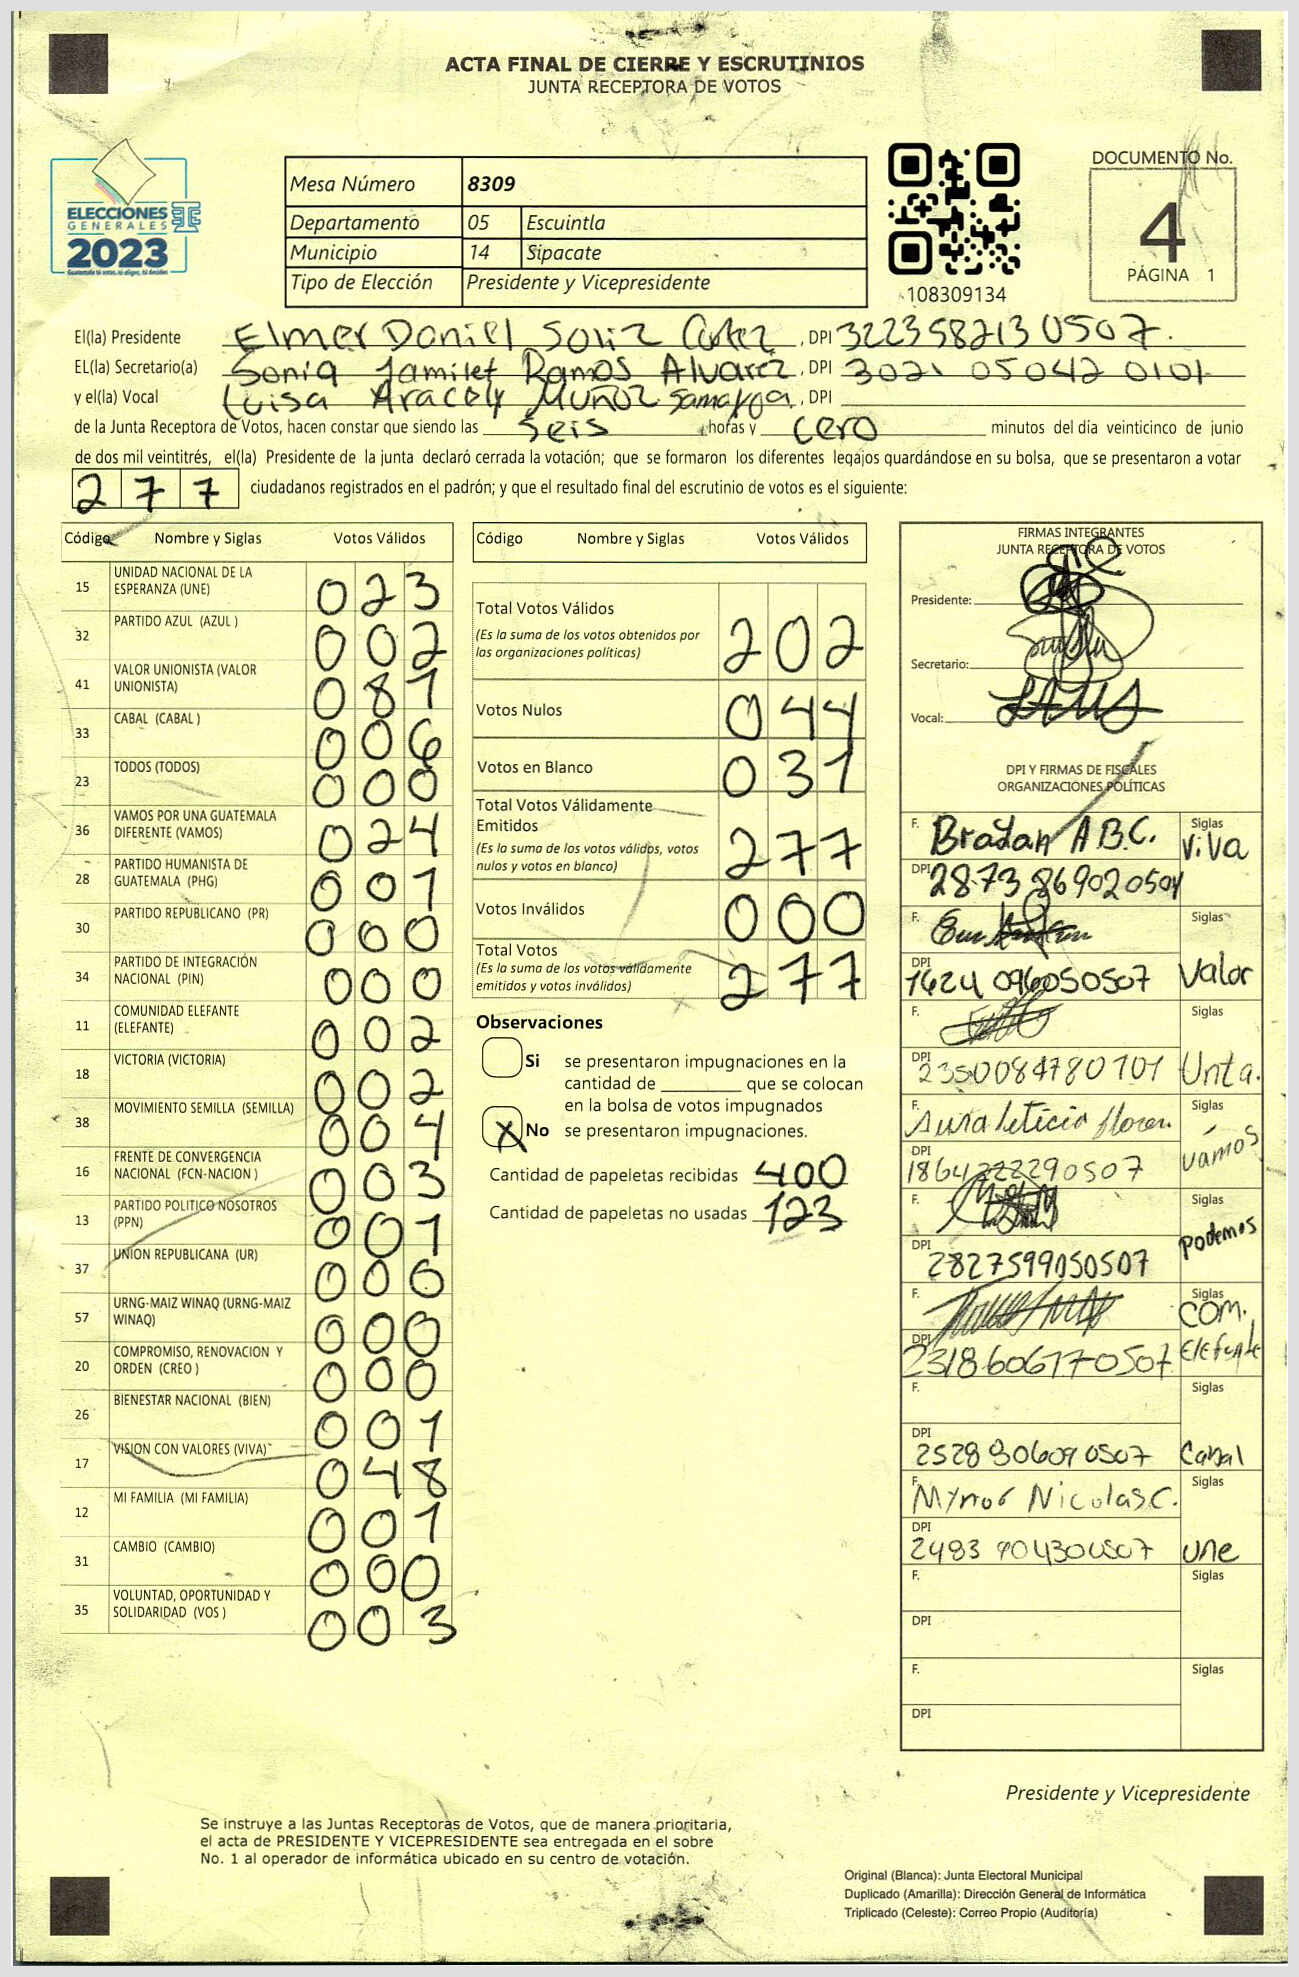 ACTA FINAL DE CIERRE Y ESCRUTINIOS
JUNTA RECEPTORA DE VOTOS
ELECCIONES
GENERALES
2023
Guatemala tú votas, tú eliges, tú decides
Mesa Número 8309
Departamento 05 Escuintla
Municipio 14 Sipacate
Tipo de Elección Presidente y Vicepresidente
108309134
DOCUMENTO No.
4
PÁGINA 1
El(la) Presidente Elmer Daniel Soliz Cortez, DPI 3223587130507.
EL(la) Secretario(a) Sonia Jamilet Ramos Alvarez, DPI 3021 05042 0101
y el(la) Vocal Luisa Aracely Muñoz Samayoa, DPI
de la Junta Receptora de Votos, hacen constar que siendo las seis horas y cero minutos del día veinticinco de junio
de dos mil veintitrés, el(la) Presidente de la junta declaró cerrada la votación; que se formaron los diferentes legajos guardándose en su bolsa, que se presentaron a votar
277 ciudadanos registrados en el padrón; y que el resultado final del escrutinio de votos es el siguiente:
Código Nombre y Siglas Votos Válidos
15 UNIDAD NACIONAL DE LA ESPERANZA (UNE) 023
32 PARTIDO AZUL (AZUL ) 002
41 VALOR UNIONISTA (VALOR UNIONISTA) 081
33 CABAL (CABAL ) 006
23 TODOS (TODOS) 000
36 VAMOS POR UNA GUATEMALA DIFERENTE (VAMOS) 024
28 PARTIDO HUMANISTA DE GUATEMALA (PHG) 001
30 PARTIDO REPUBLICANO (PR) 000
34 PARTIDO DE INTEGRACIÓN NACIONAL (PIN) 000
11 COMUNIDAD ELEFANTE (ELEFANTE) 002
18 VICTORIA (VICTORIA) 002
38 MOVIMIENTO SEMILLA (SEMILLA) 004
16 FRENTE DE CONVERGENCIA NACIONAL (FCN-NACION ) 003
13 PARTIDO POLITICO NOSOTROS (PPN) 001
37 UNION REPUBLICANA (UR) 000
57 URNG-MAIZ WINAQ (URNG-MAIZ WINAQ) 000
20 COMPROMISO, RENOVACION Y ORDEN (CREO ) 000
26 BIENESTAR NACIONAL (BIEN) 001
17 VISION CON VALORES (VIVA) 048
12 MI FAMILIA (MI FAMILIA) 001
31 CAMBIO (CAMBIO) 000
35 VOLUNTAD, OPORTUNIDAD Y SOLIDARIDAD (VOS ) 003
Código Nombre y Siglas Votos Válidos
Total Votos Válidos 202
(Es la suma de los votos obtenidos por
las organizaciones políticas)
Votos Nulos 044
Votos en Blanco 031
Total Votos Válidamente
Emitidos 277
(Es la suma de los votos válidos, votos
nulos y votos en blanco)
Votos Inválidos 000
Total Votos 277
(Es la suma de los votos válidamente
emitidos y votos inválidos)
Observaciones
Si se presentaron impugnaciones en la
cantidad de ________ que se colocan
en la bolsa de votos impugnados
X No se presentaron impugnaciones.
Cantidad de papeletas recibidas 400
Cantidad de papeletas no usadas 123
FIRMAS INTEGRANTES
JUNTA RECEPTORA DE VOTOS
Presidente:
Secretario:
Vocal:
DPI Y FIRMAS DE FISCALES
ORGANIZACIONES POLÍTICAS
F. Bradan A B.C. Siglas Viva
DPI 2873 86902 0504
F. Siglas Valor
DPI 1624 096050507
F. Siglas Unta.
DPI 2350084780101
F. Aura leticia flores Siglas vamos
DPI 1864222290507
F. Siglas podemos
DPI 2827599050507
F. Siglas COM. Elefante
DPI 2318606170507
F. Siglas Cabal
DPI 2528 90609 0507
F. Mynor Nicolas C. Siglas une
DPI 2483 904300507
F. Siglas
DPI
F. Siglas
DPI
Presidente y Vicepresidente
Se instruye a las Juntas Receptoras de Votos, que de manera prioritaria,
el acta de PRESIDENTE Y VICEPRESIDENTE sea entregada en el sobre
No. 1 al operador de informática ubicado en su centro de votación.
Original (Blanca): Junta Electoral Municipal
Duplicado (Amarilla): Dirección General de Informática
Triplicado (Celeste): Correo Propio (Auditoría)